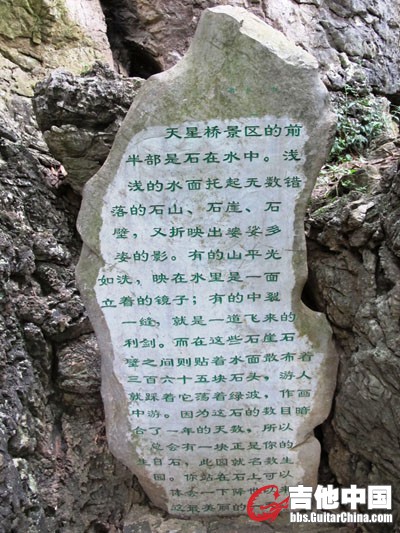 天星桥景区的前
半部是石在水中。浅
浅的水面托起无数错
落的石山、石崖、石
壁，又折映出婆娑多
姿的影。有的山平光
如洗，映在水里是一面
立着的镜子；有的中裂
一缝，就是一道飞来的
利剑。而在这些石崖石
壁之间则贴着水面散布着
三百六十五块石头，游人
就踩着它荡着绿波，作画
中游。因为这石的数目暗
合了一年的天数，所以
总会有一块正是你的
生日石，此园就名数生
园。你站在石上可以
体会一下降世
这最美丽的
吉他中国
bbs.GuitarChina.com